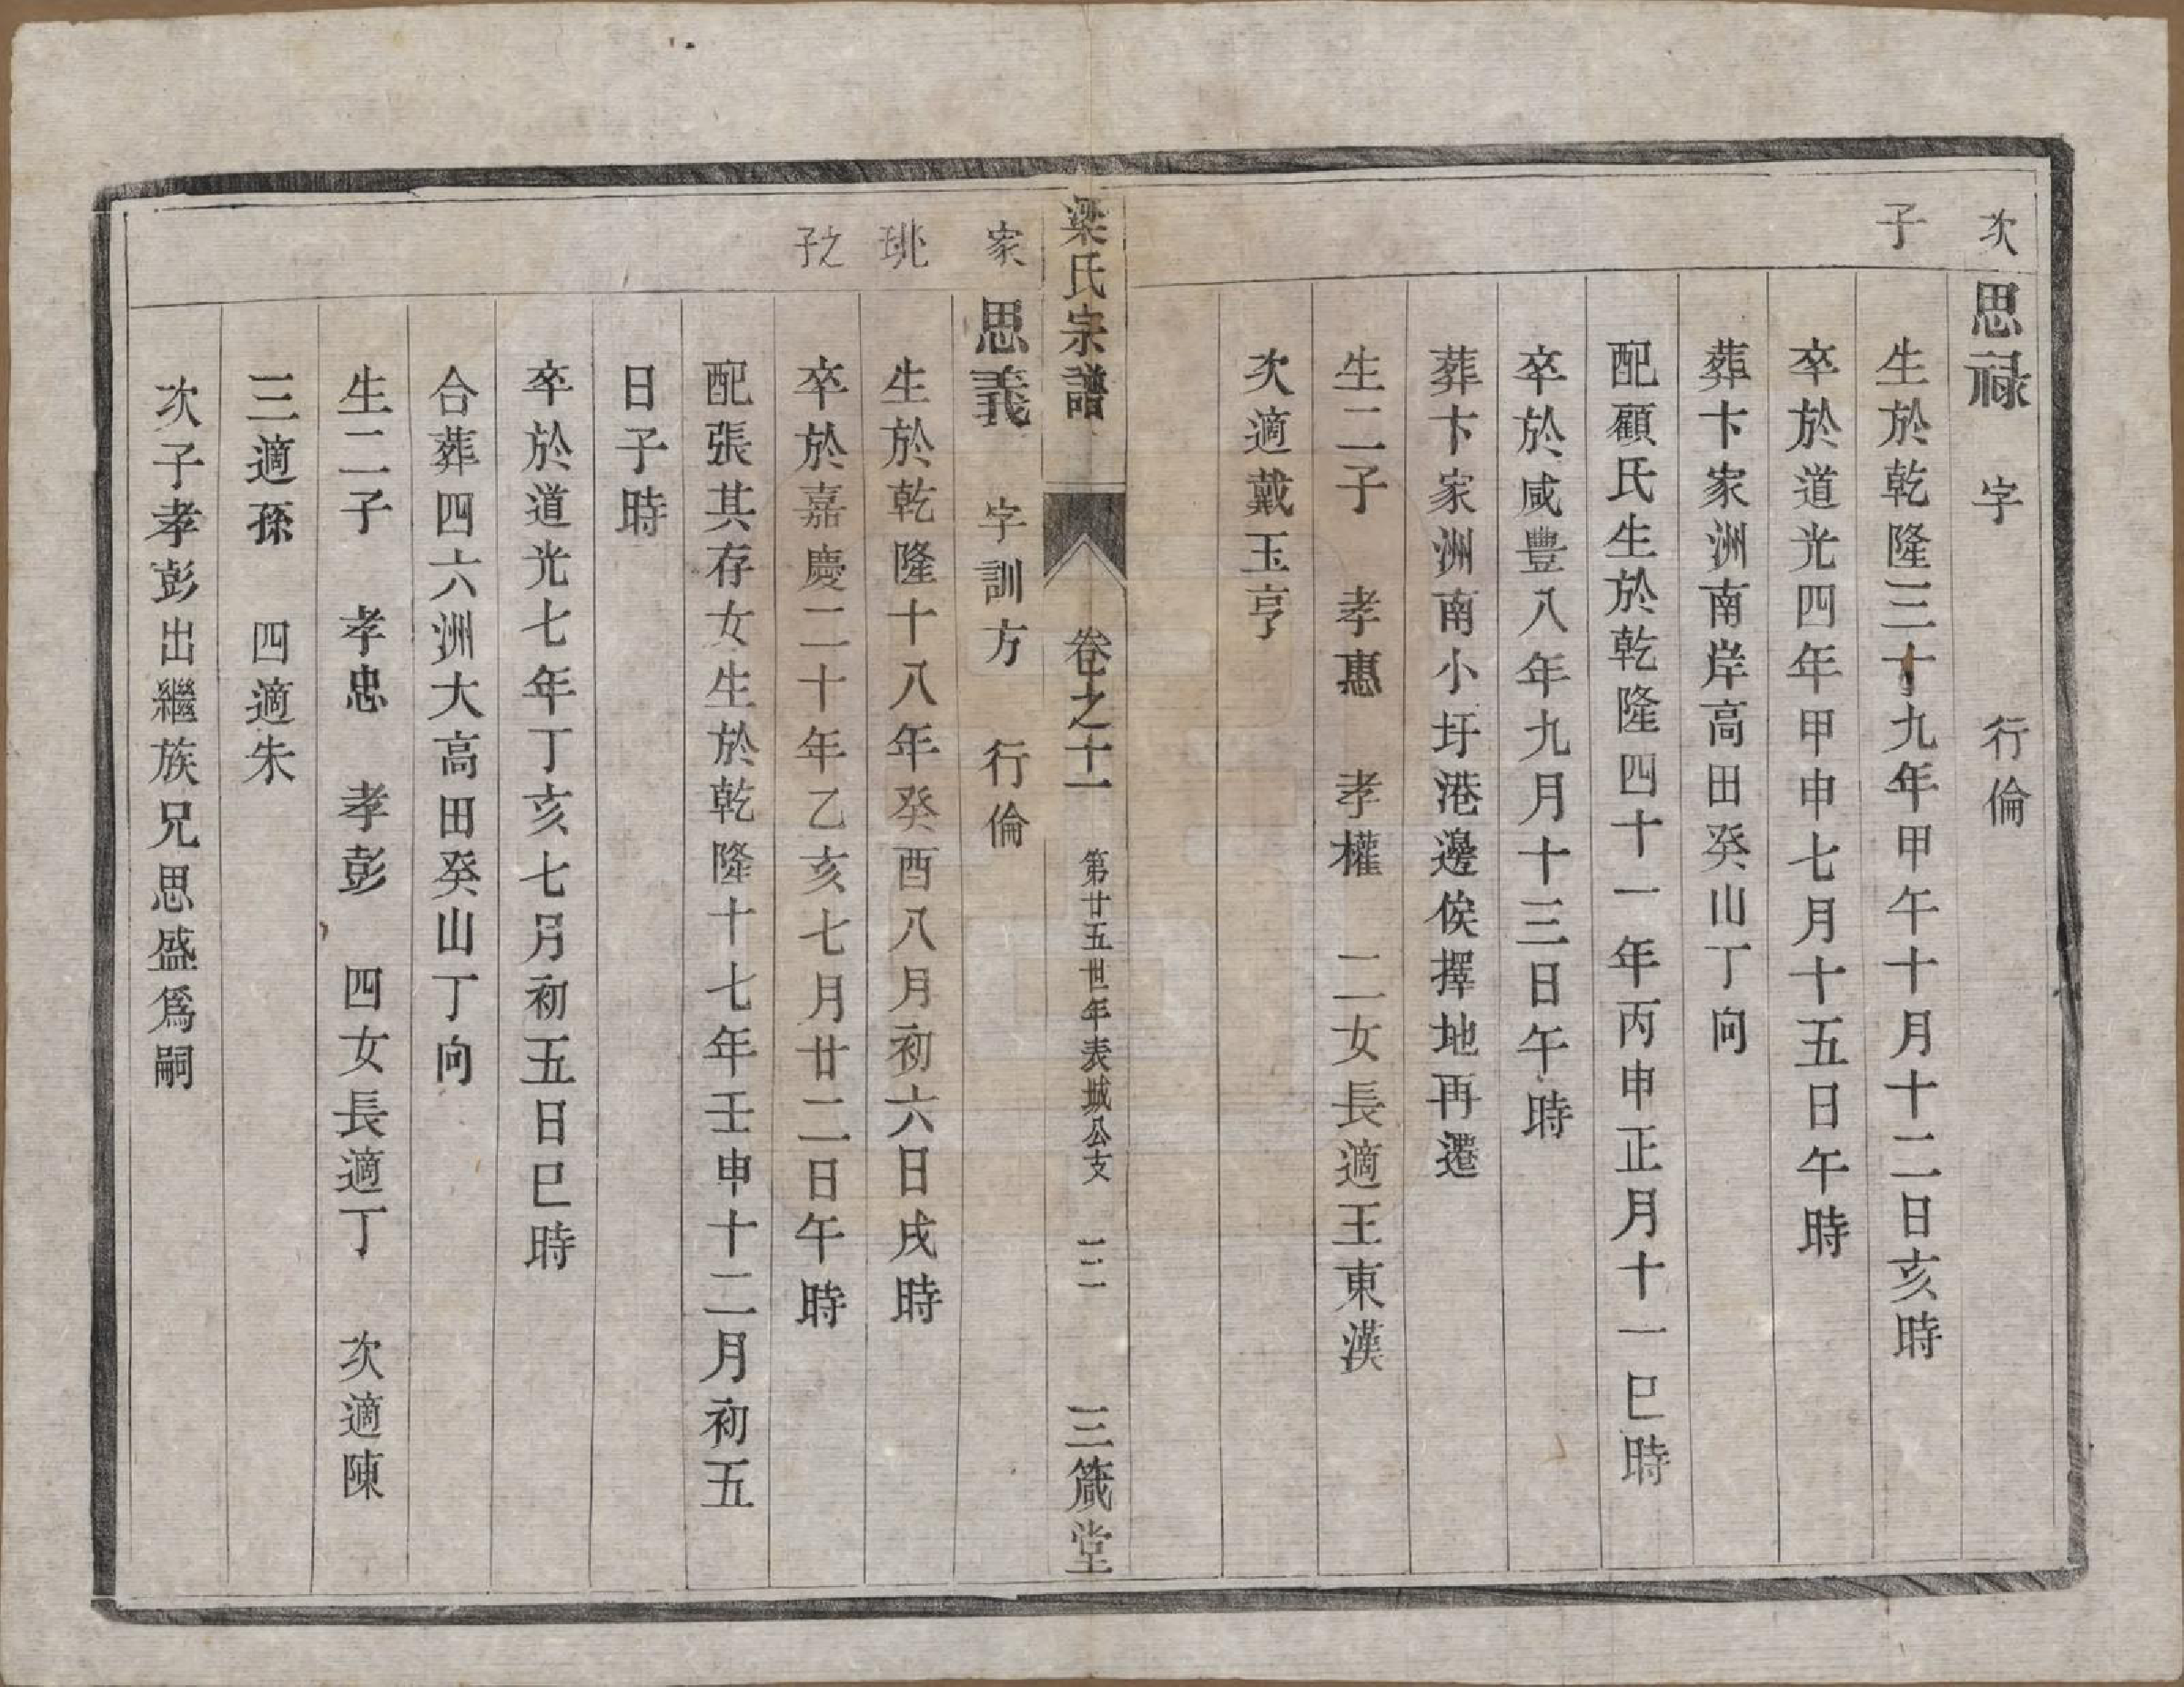 次
思禄 字 行倫
子
生於乾隆三十九年甲午十月十二日亥時
卒於道光四年甲申七月十五日午時
葬卞家洲南岸高田癸山丁向
配顧氏生於乾隆四十一年丙申正月十一巳時
卒於咸豐八年九月十三日午時
葬卞家洲南小圩港邊俟擇地再遷
生二子 孝惠 孝權 二女長適王東漢
次適戴玉亨
梁氏宗譜 卷之十一 第廿五世年表城公支 三箴堂
家
思義 字訓方 行倫
珧
生於乾隆十八年癸酉八月初六日戌時
子
卒於嘉慶二十年乙亥七月廿二日午時
配張其存女生於乾隆十七年壬申十二月初五
日子時
卒於道光七年丁亥七月初五日巳時
合葬四六洲大高田癸山丁向
生二子 孝忠 孝彭 四女長適丁 次適陳
三適孫 四適朱
次子孝彭出繼族兄思盛爲嗣